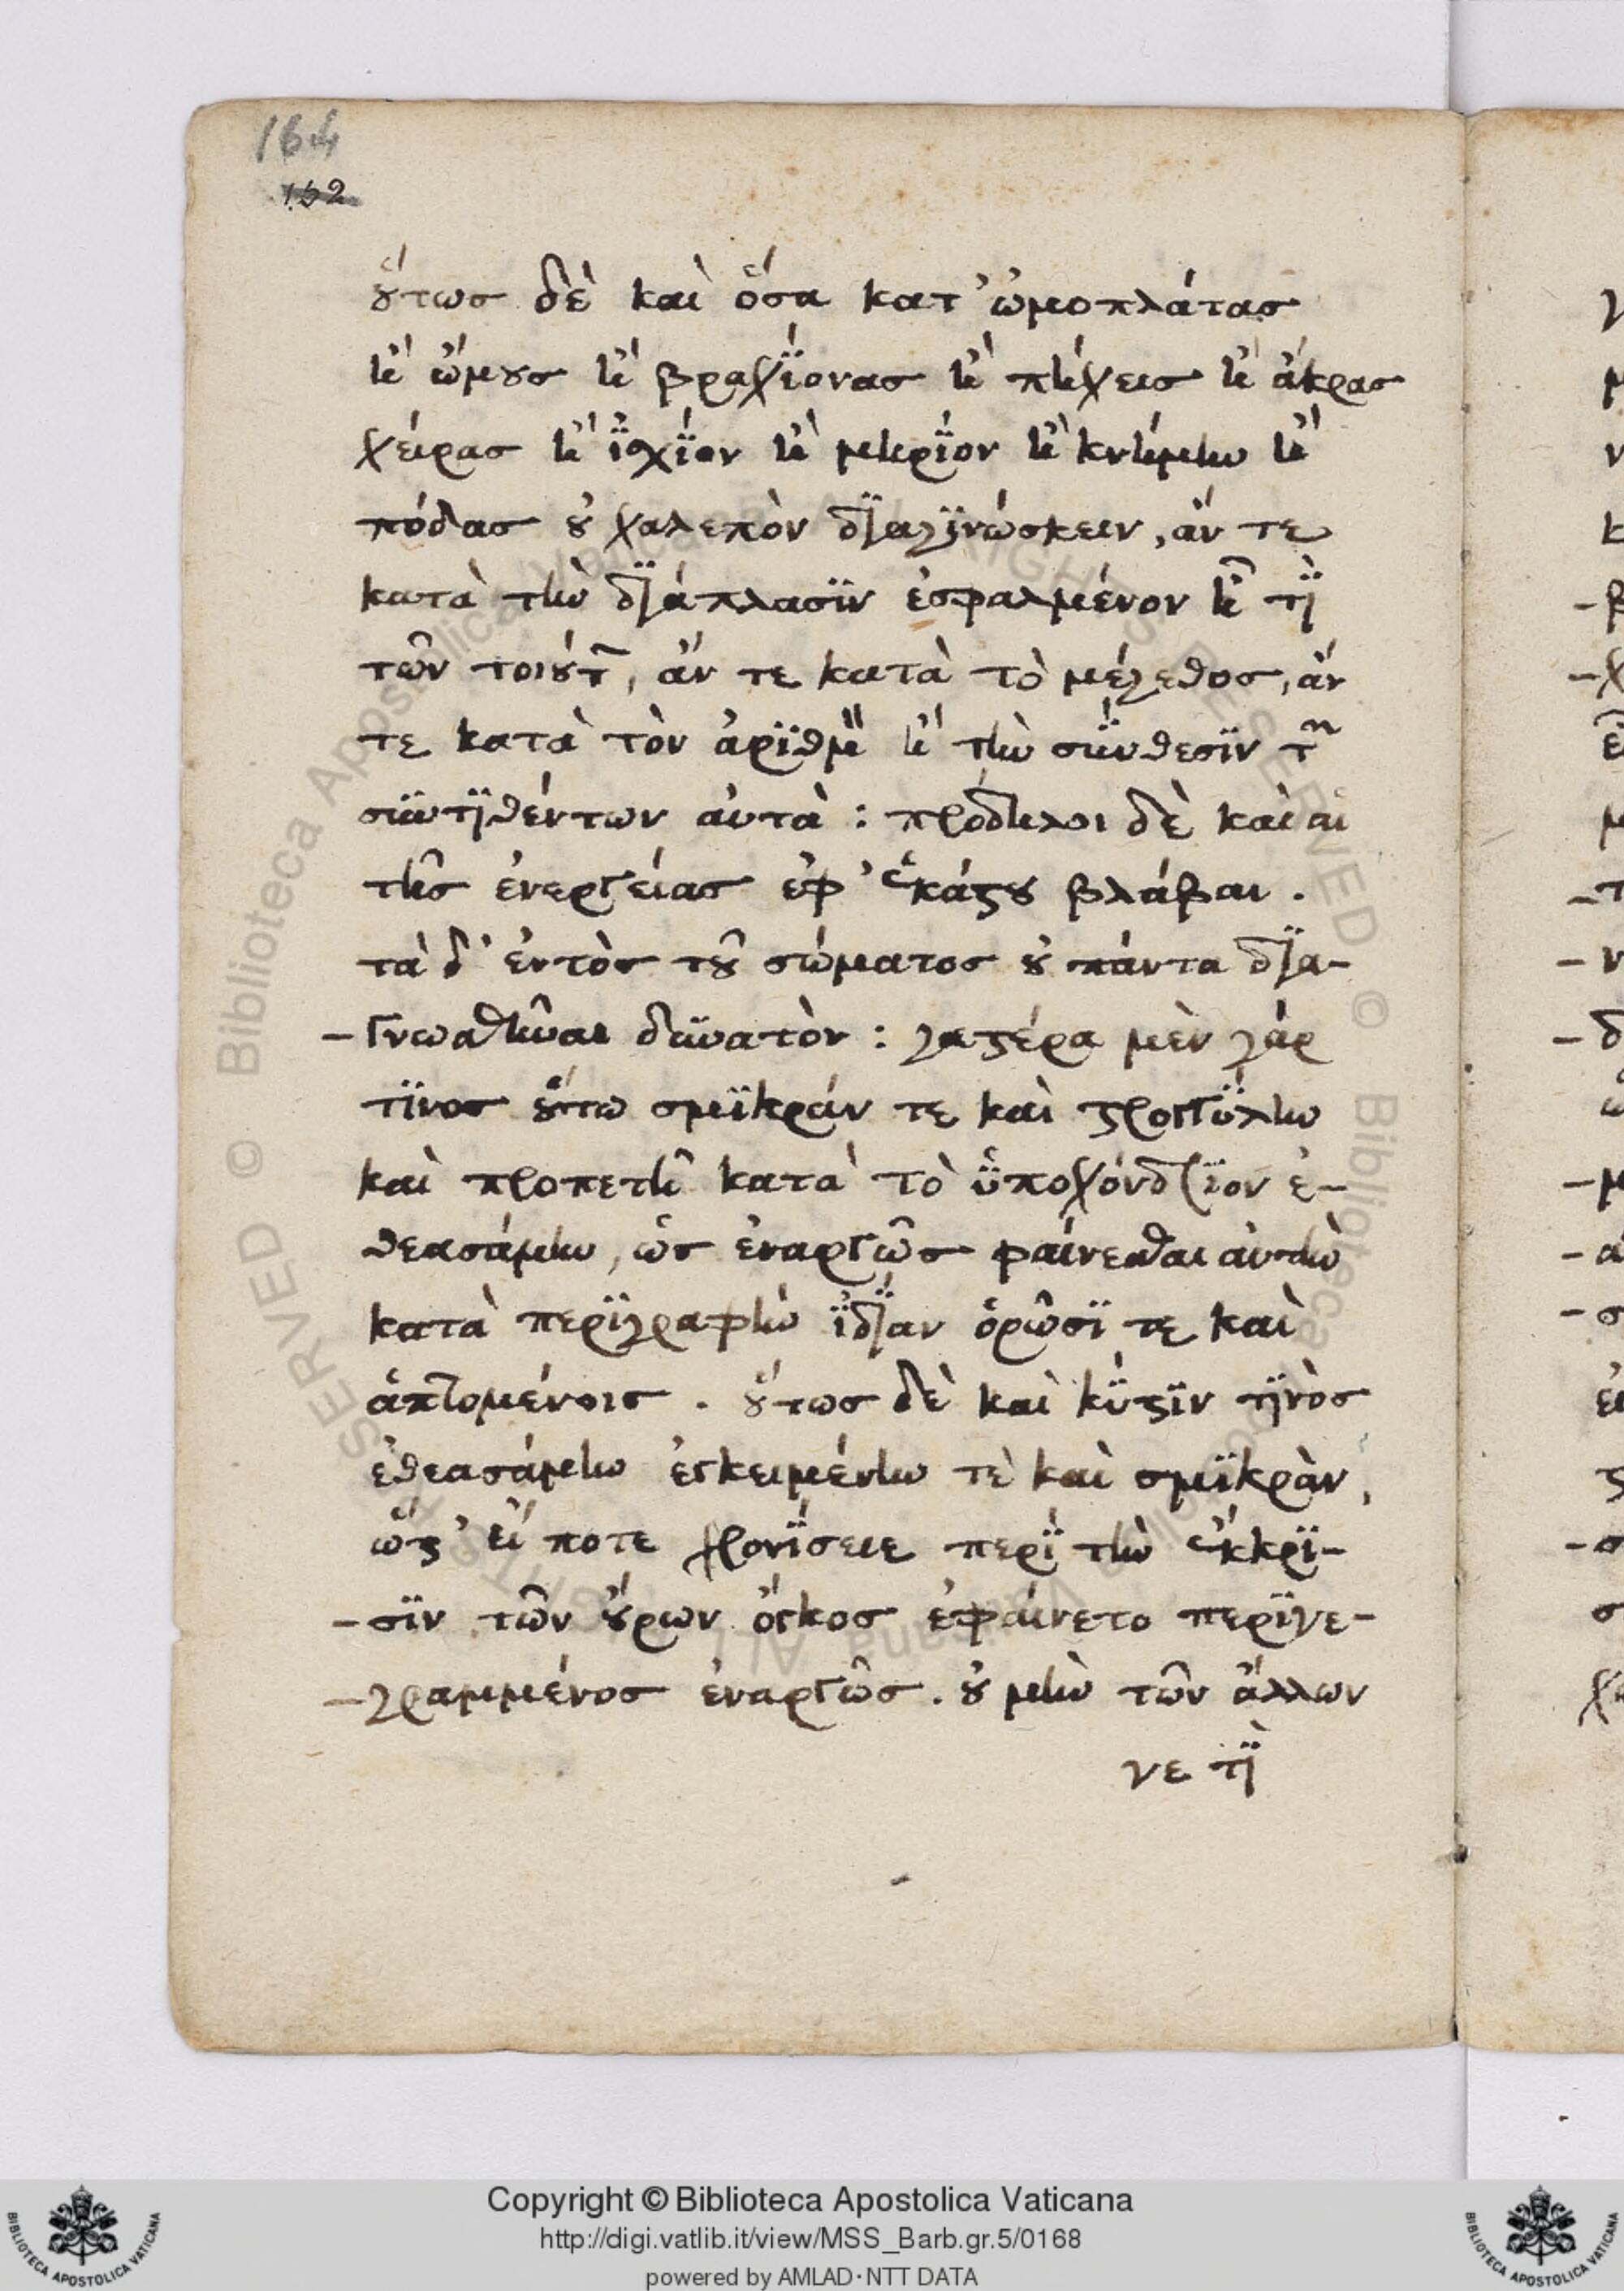 164
162
οὕτωσ δὲ καὶ ὅσα κατ' ὠμοπλάτασ
ἢ ὤμουσ ἢ βραχΐονασ ἢ πήχεισ ἢ ἄκρασ
χείρασ ἢ ἰσχΐον ἢ μηρΐον ἢ κνήμην ἢ
πόδασ οὐ χαλεπὸν διαγϊνώσκειν, ἄν τε
κατὰ τὴν διάπλασϊν ἐσφαλμένον ᾖ τὶ
τῶν τοιούτ, ἄν τε κατὰ τὸ μέγεθοσ, ἄν
τε κατὰ τὸν ἀρϊθμὸν ἢ τὴν σύνθεσϊν τῶν
συντϊθέντων αὐτὰ : πρόδηλοι δὲ καὶ αἱ
τῆσ ἐνεργείασ ἐφ' ἑκάστου βλάβαι .
τὰ δ' ἐντὸσ τοῦ σώματοσ οὐ πάντα δια-
-γνωσθῆναι δυνατὸν : γαστέρα μὲν γάρ
τϊνοσ οὕτω σμϊκράν τε καὶ στρογγύλην
καὶ προπετῆ κατὰ τὸ ὑποχόνδρϊον ἐ-
θεασάμην, ὡσ ἐναργῶσ φαίνεσθαι αὐτὴν
κατὰ περϊγραφὴν ἰδίαν ὁρῶσϊ τε καὶ
ἁπτομένοισ . οὕτωσ δὲ καὶ κύστϊν τϊνὸσ
ἐθεασάμην ἐγκειμένην τὲ καὶ σμϊκρὰν,
ὥστ' εἴ ποτε χρονΐσειε περϊ τὴν ἔκκρϊ-
-σϊν τῶν οὔρων ὄγκοσ ἐφαίνετο περϊγε-
-γραμμένοσ ἐναργῶσ . οὐ μὴν τῶν ἄλλων
γε τὶ
Copyright © Biblioteca Apostolica Vaticana
http://digi.vatlib.it/view/MSS_Barb.gr.5/0168
powered by AMLAD·NTT DATA